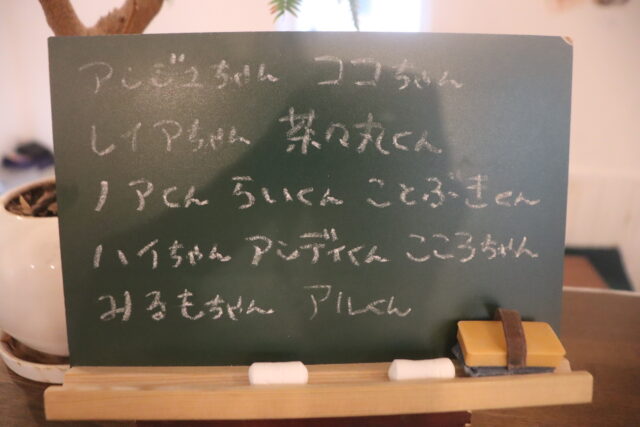 アンジュちゃん ココちゃん
レイアちゃん 茶々丸くん
ノアくん らいくん ことぶきくん
ハイちゃん アンディくん こころちゃん
みるもちゃん アルくん